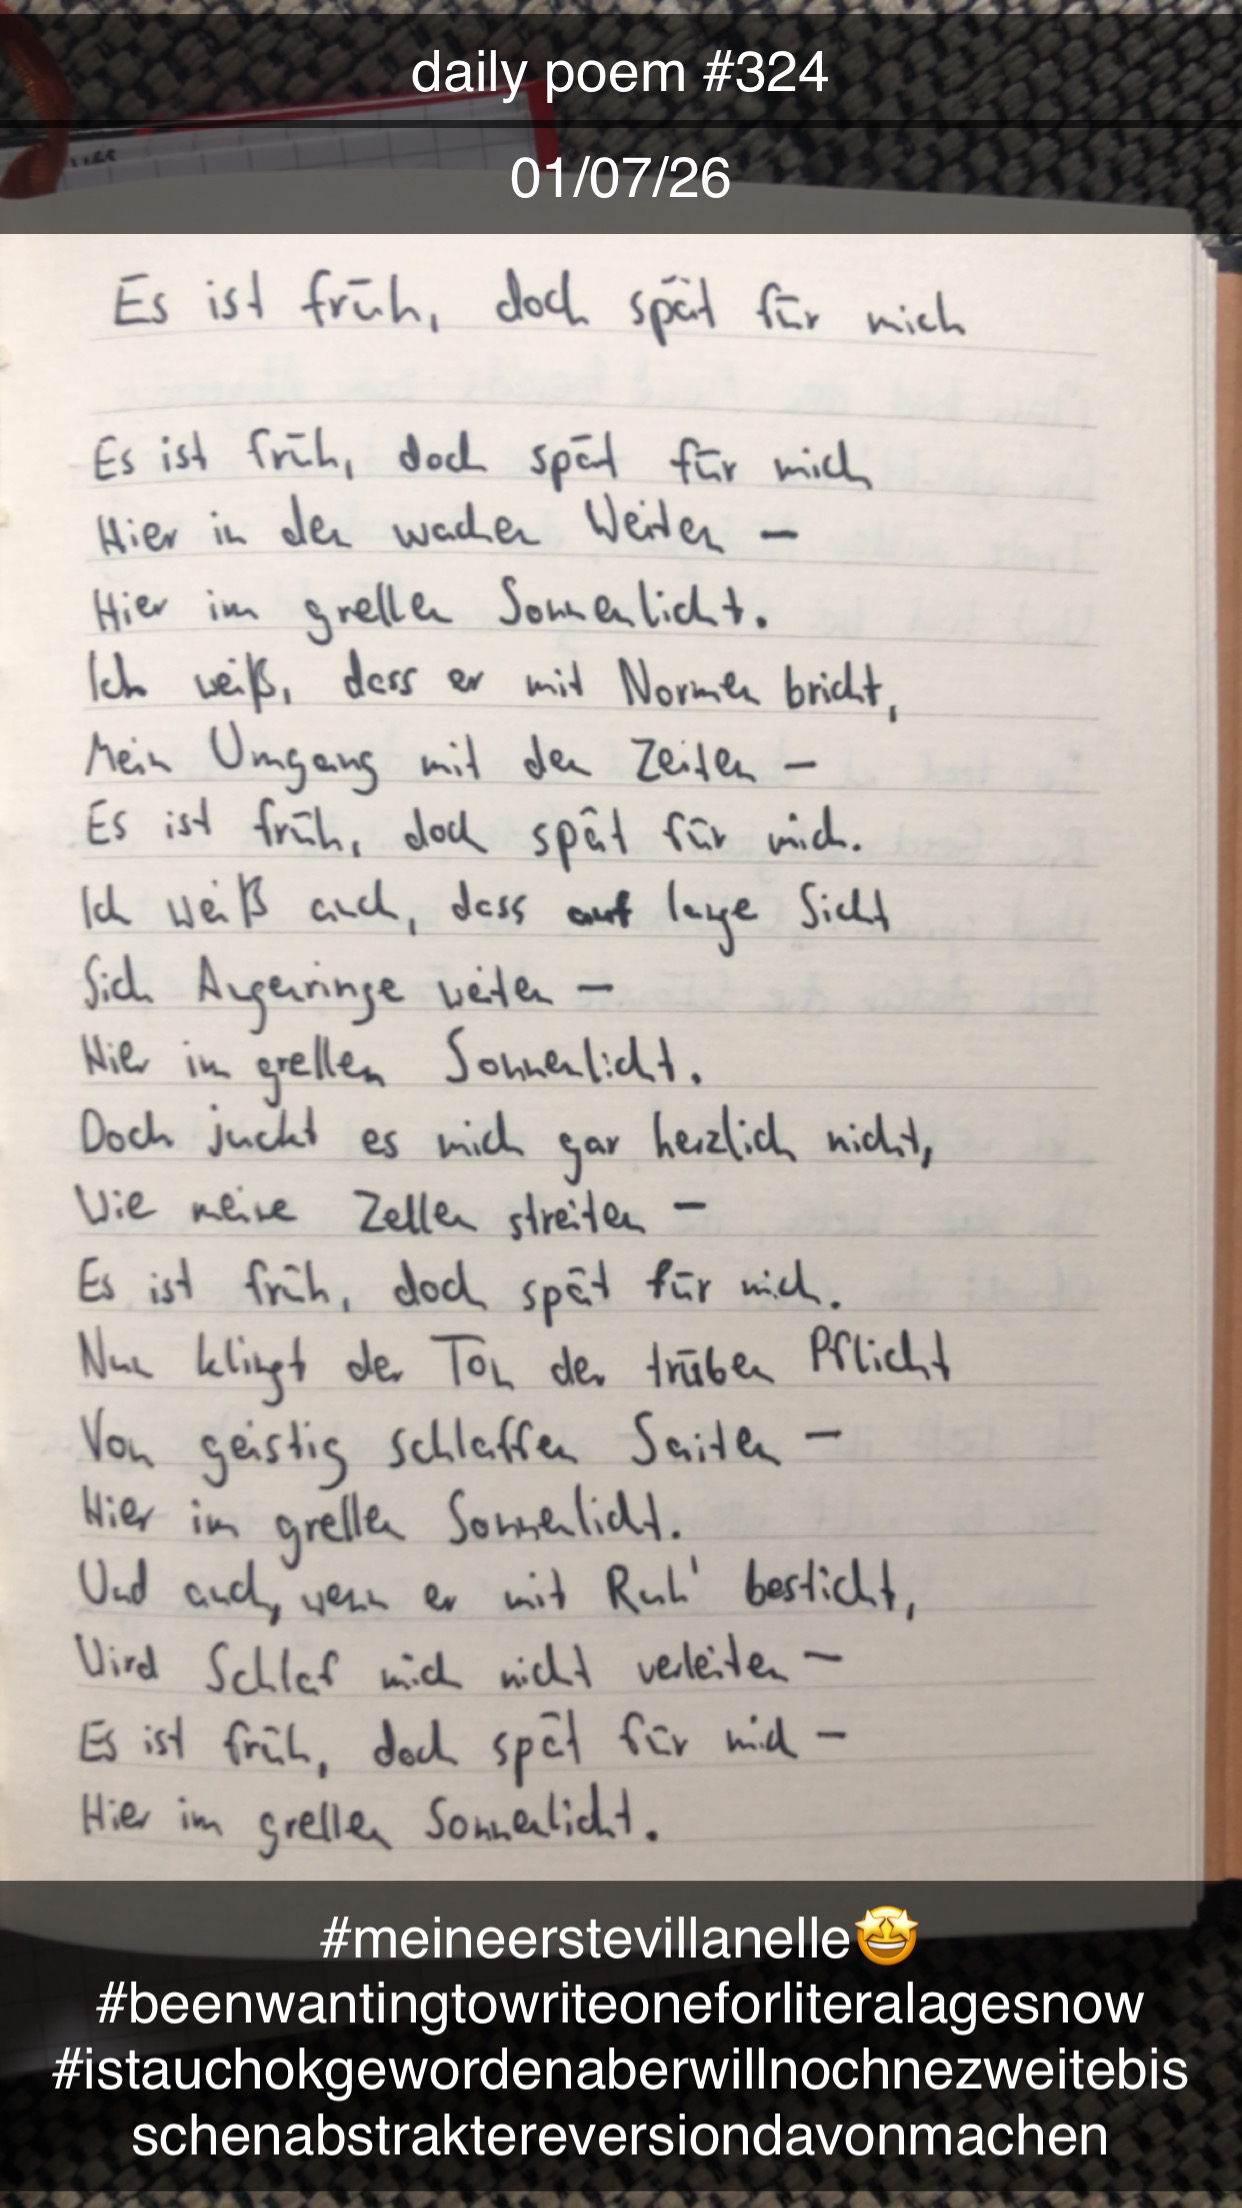 daily poem #324
01/07/26
Es ist früh, doch spät für mich
Es ist früh, doch spät für mich
Hier in den wachen Weiten –
Hier im grellen Sonnenlicht.
Ich weiß, dass er mit Normen bricht,
Mein Umgang mit den Zeiten –
Es ist früh, doch spät für mich.
Ich weiß auch, dass auf lange Sicht
Sich Augenringe weiten –
Hier im grellen Sonnenlicht.
Doch juckt es mich gar herzlich nicht,
Wie meine Zellen streiten –
Es ist früh, doch spät für mich.
Nun klingt der Ton der trüben Pflicht
Von geistig schlaffen Saiten –
Hier im grellen Sonnenlicht.
Und auch, wenn er mit Ruh' besticht,
Wird Schlaf mich nicht verleiten –
Es ist früh, doch spät für mich –
Hier im grellen Sonnenlicht.
#meineerstevillanelle🤩
#beenwantingtowriteoneforliteralagesnow
#istauchokgewordenaberwillnochnezweitebis
schenabstraktereversiondavonmachen